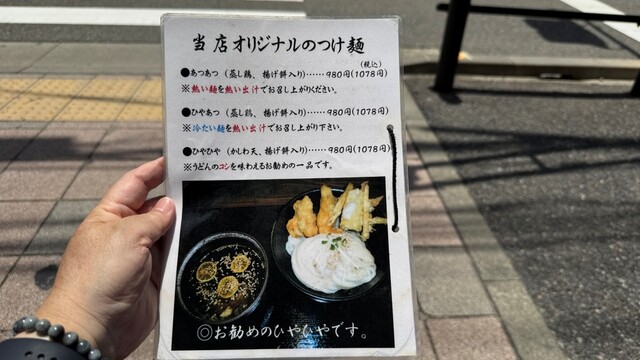 当店オリジナルのつけ麺
(税込)
●あつあつ（蒸し鶏、揚げ餅入り）……980円(1078円)
※熱い麺を熱い出汁でお召し上がりください。
●ひやあつ（蒸し鶏、揚げ餅入り）……980円(1078円)
※冷たい麺を熱い出汁でお召し上がり下さい。
●ひやひや（かしわ天、揚げ餅入り）…980円(1078円)
※うどんのコシを味わえるお勧めの一品です。
◎お勧めのひやひやです。